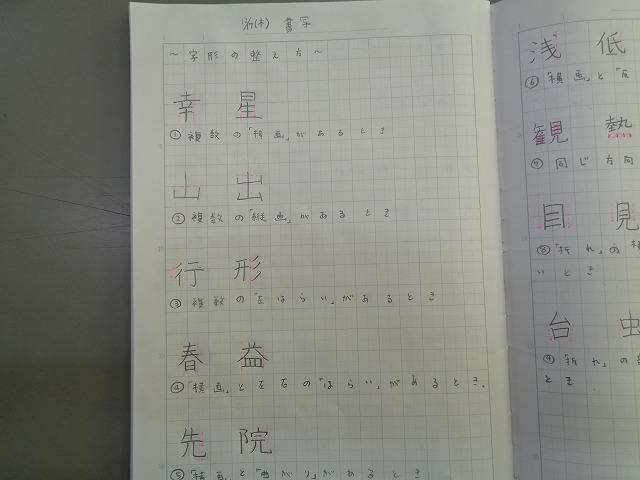 12/17(木) 書写
～字形の整え方～
幸 星
①複数の「横画」があるとき
山 出
②複数の「縦画」があるとき
行 形
③複数の「左はらい」があるとき
春 益
④「横画」と左右の「はらい」があるとき.
先 院
⑤「横画」と「曲がり」があるとき
浅 低
⑥「横画」と「反
観 熱
⑦同じ方向
目 見
⑧「折れ」の
いとき
台 虫
⑨「折れ」の
とき